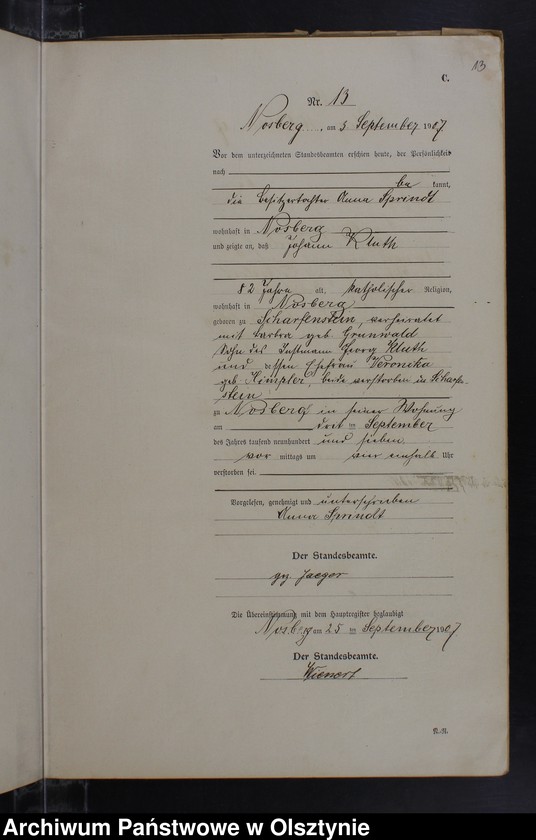 13
C.
Nr. 13
Nosberg, am 3 September 1907
Vor dem unterzeichneten Standesbeamten erschien heute, der Persönlichkeit
nach
be kannt,
die Besitzertochter Anna Sprindt
wohnhaft in Nosberg
und zeigte an, daß Johann Kluth
82 Jahre alt, katholischer Religion,
wohnhaft in Nosberg
geboren zu Scharfenstein, verheiratet
mit Barbra geb. Grunwald
Sohn des Instmann Georg Kluth
und dessen Ehefrau Veronika
geb. Kimpler, beide verstorben in Scharfen-
stein
zu Nosberg in seiner Wohnung
am drei ten September
des Jahres tausend neunhundert und sieben
vor mittags um vier einhalb Uhr
verstorben sei.
Vorgelesen, genehmigt und unterschrieben
Anna Sprindt
Der Standesbeamte.
gez. Jaeger
Die Übereinstimmung mit dem Hauptregister beglaubigt
Nosberg am 25 ten September 1907
Der Standesbeamte.
Wienert
Archiwum Państwowe w Olsztynie